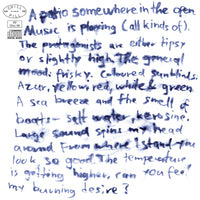 A patio somewhere in the open
Music is playing (all kinds of).
The protagonists are either tipsy
or slightly high The general
mood: frisky. Coloured sunblinds:
Azur, yellow, red, white & green
A sea breeze and the smell of
boats - salt water, kerosine.
Large sound spins my head
around From where I stand you
look so good. The temperature
is getting higher, can you feel
my burning desire?